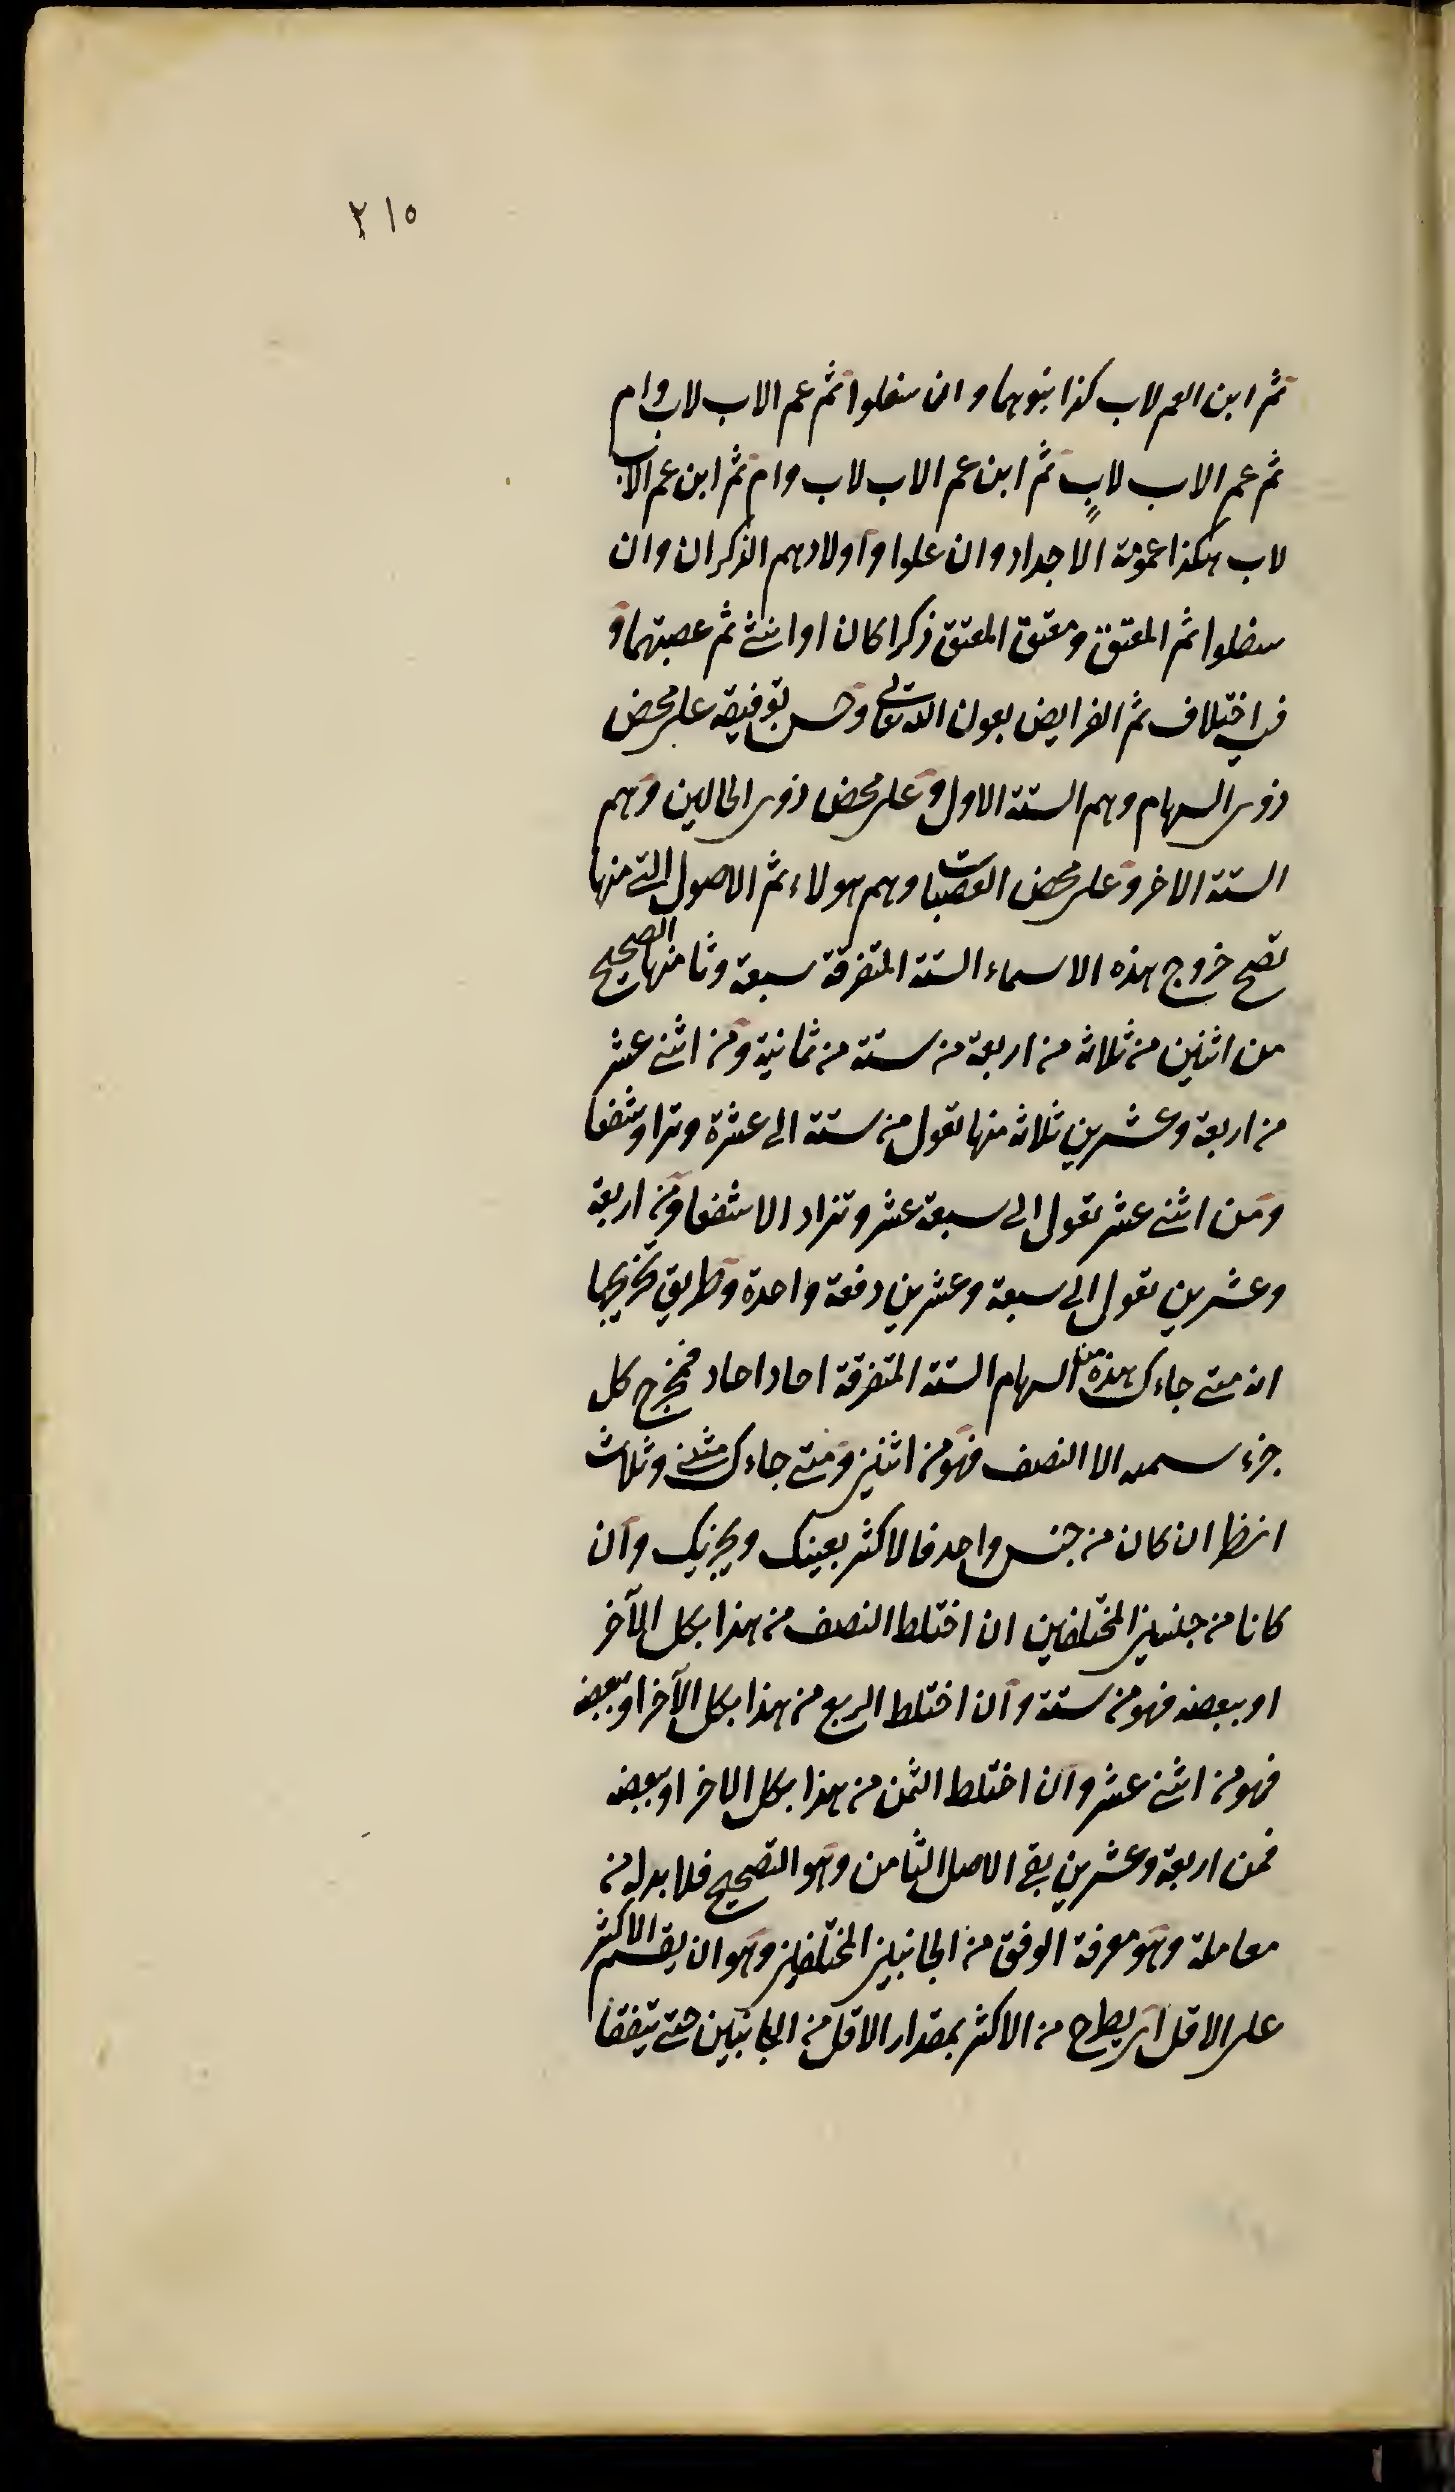 ٢١٥
ثم ابن العم لاب كذا بنوهما وان سفلوا ثم عم الاب لاب وام
ثم عم الاب لابٍ ثم ابن عم الاب لاب وام ثم ابن عم الاب
لاب هكذا عمومة الاجداد وان علوا واولادهم الذكران وان
سفلوا ثم المعتق ومعتق المعتق ذكرا كان او انثى ثم عصبتهما و
فيه اختلاف ثم الفرايض بعون الله تعالى وحسن توفيقه على محض
ذوى السهام وهم الستة الاول وعلى محض ذوى الحالين وهم
الستة الاخر وعلى محض العصبات وهم هولاء ثم الاصول التى منها
تصح خروج هذه الاسماء الستة المتفرقة سبعة وثامنها التصحيح
من اثنين من ثلاثه من اربعة من ستة من ثمانية ومن اثنى عشر
من اربعة وعشرين ثلاثه منها تعول من ستة الى عشرة وترا وشفعا
ومن اثنى عشر تعول الى سبعة عشر وتزاد الا شفعا ومن اربعة
وعشرين تعول الى سبعة وعشرين دفعة واحدة وطريق تخريجها
انه متى جاءك من هذه السهام الستة المتفرقة احاد احاد فمخرج كل
جزء سميه الا النصف فهو من اثنين ومتى جاءك مثنى وثلاث
انظر ان كان من جنس واحد فالاكثر يعينك ويجزيك وان
كانا من جنسين المختلفين ان اختلط النصف من هذا بكل الآخر
او ببعضه فهو من ستة وان اختلط الربع من هذا بكل الآخر او ببعضه
فهو من اثنى عشر وان اختلط الثمن من هذا بكل الاخر او ببعضه
فمن اربعة وعشرين بقى الاصل الثامن وهو التصحيح فلا بد له من
معاملة وهو معرفة الوفق من الجانبين المختلفين وهو ان يقسم الاكثر
على الاقل اى يطرح من الاكثر بمقدار الاقل من الجانبين حتى يتفقا